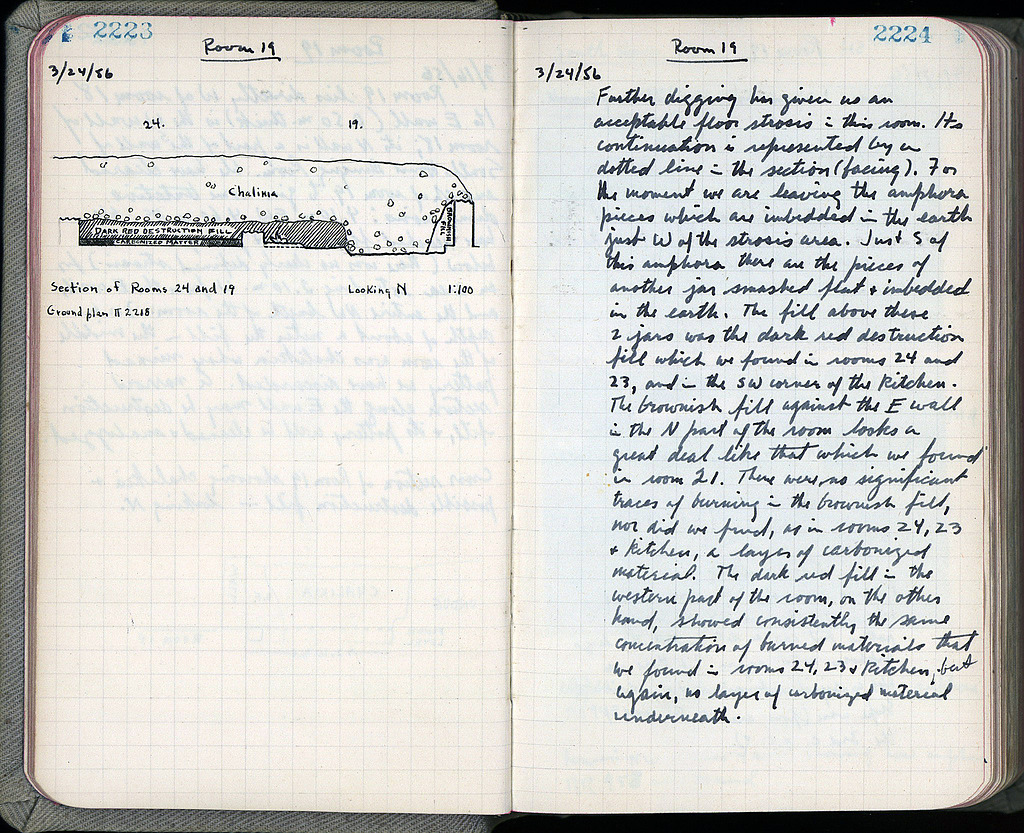 2223
Room 19
3/24/56
24. 19.
Chalinia
DARK RED DESTRUCTION FILL
CARBONIZED MATTER
BROWNISH FILL
Section of Rooms 24 and 19 Looking N 1:100
Ground plan π 2218
2224
Room 19
3/24/56
Further digging has given us an
acceptable floor strosis in this room. Its
continuation is represented by a
dotted line in the section (facing). For
the moment we are leaving the amphora
pieces which are imbedded in the earth
just W of the strosis area. Just S of
this amphora there are the pieces of
another jar smashed flat + imbedded
in the earth. The fill above these
2 jars was the dark red destruction
fill which we found in rooms 24 and
23, and in the SW corner of the Kitchen.
The brownish fill against the E wall
in the N part of the room looks a
great deal like that which we found
in room 21. There were no significant
traces of burning in the brownish fill,
nor did we find, as in rooms 24, 23
+ Kitchen, a layer of carbonized
material. The dark red fill in the
western part of the room, on the other
hand, showed consistently the same
concentration of burned materials that
we found in rooms 24, 23 + Kitchen, but
again, no layer of carbonized material
underneath.